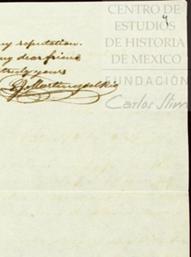 4
CENTRO DE
ESTUDIOS
DE HISTORIA
DE MEXICO
FUNDACIÓN
Carlos Slim
my reputation.
my dear friend
truly yours